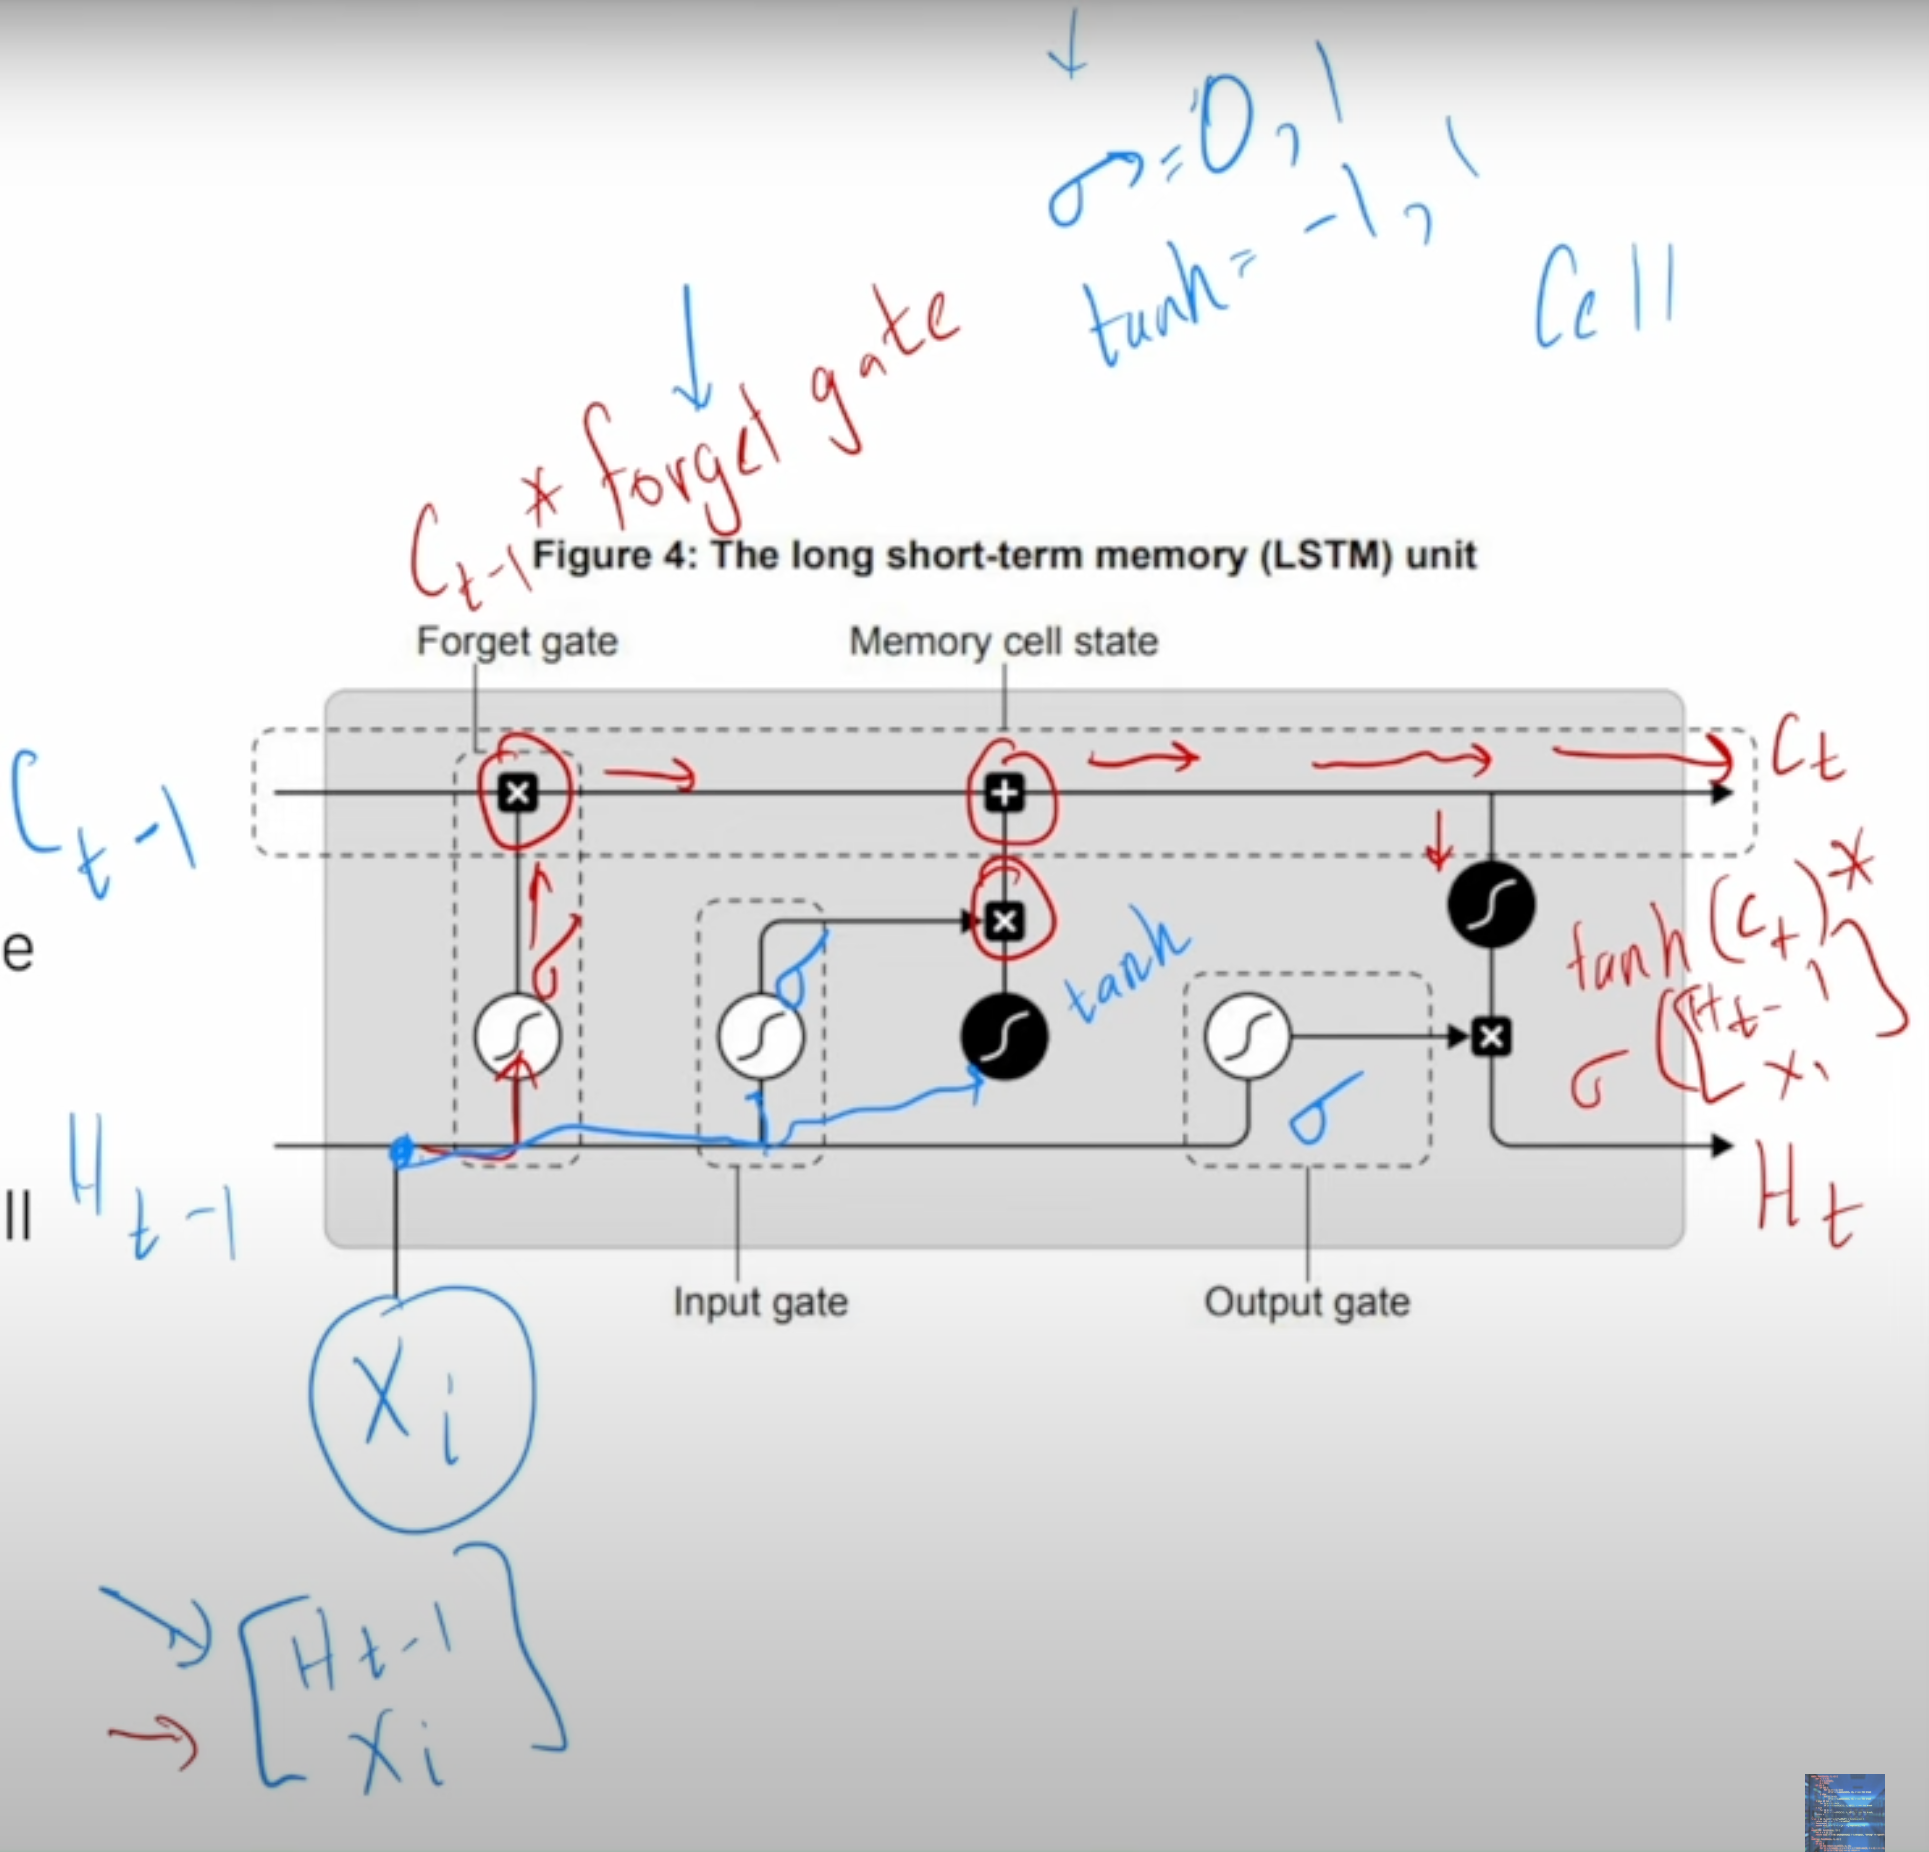 σ = 0, 1
tanh = -1, 1
Cell
C t-1 * forget gate
Figure 4: The long short-term memory (LSTM) unit
Forget gate
Memory cell state
C t-1
C t
e
σ
σ
tanh
tanh (C t) *
σ [H t-1
X i]
σ
ll
H t-1
H t
Input gate
Output gate
X i
[H t-1
X i]